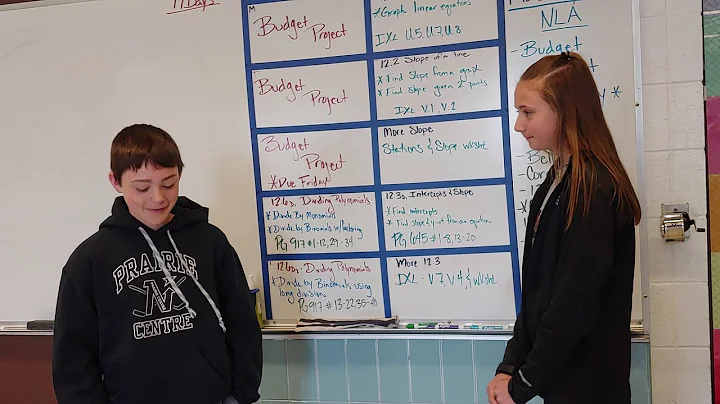 17 Days
M
Budget
Project
*Graph linear equations
IXL U.5, U.7, U.8
Budget
Project
12.2 Slope of a line
* Find Slope from a graph
* Find Slope given 2 points
IXL V.1, V.2
Budget
Project
*Due Friday
More Slope
Stations & Slope wksht
12.6a, Dividing Polynomials
* Divide By Monomials
* Divide by Binomials w/factoring
PG 917 #1-12, 29-34
12.3a, Intercepts & Slope
* Find intercepts
* Find slope and y-int from an equation
PG 645 #1-8, 13-20
12.6b - Dividing Polynomials
* Divide by Binomials using
long division
PG 917 # 13-22, 35-40
More 12.3
IXL - V.7, V.4 & wksht
NLA
- Budget
PRAIRIE
N
CENTRE